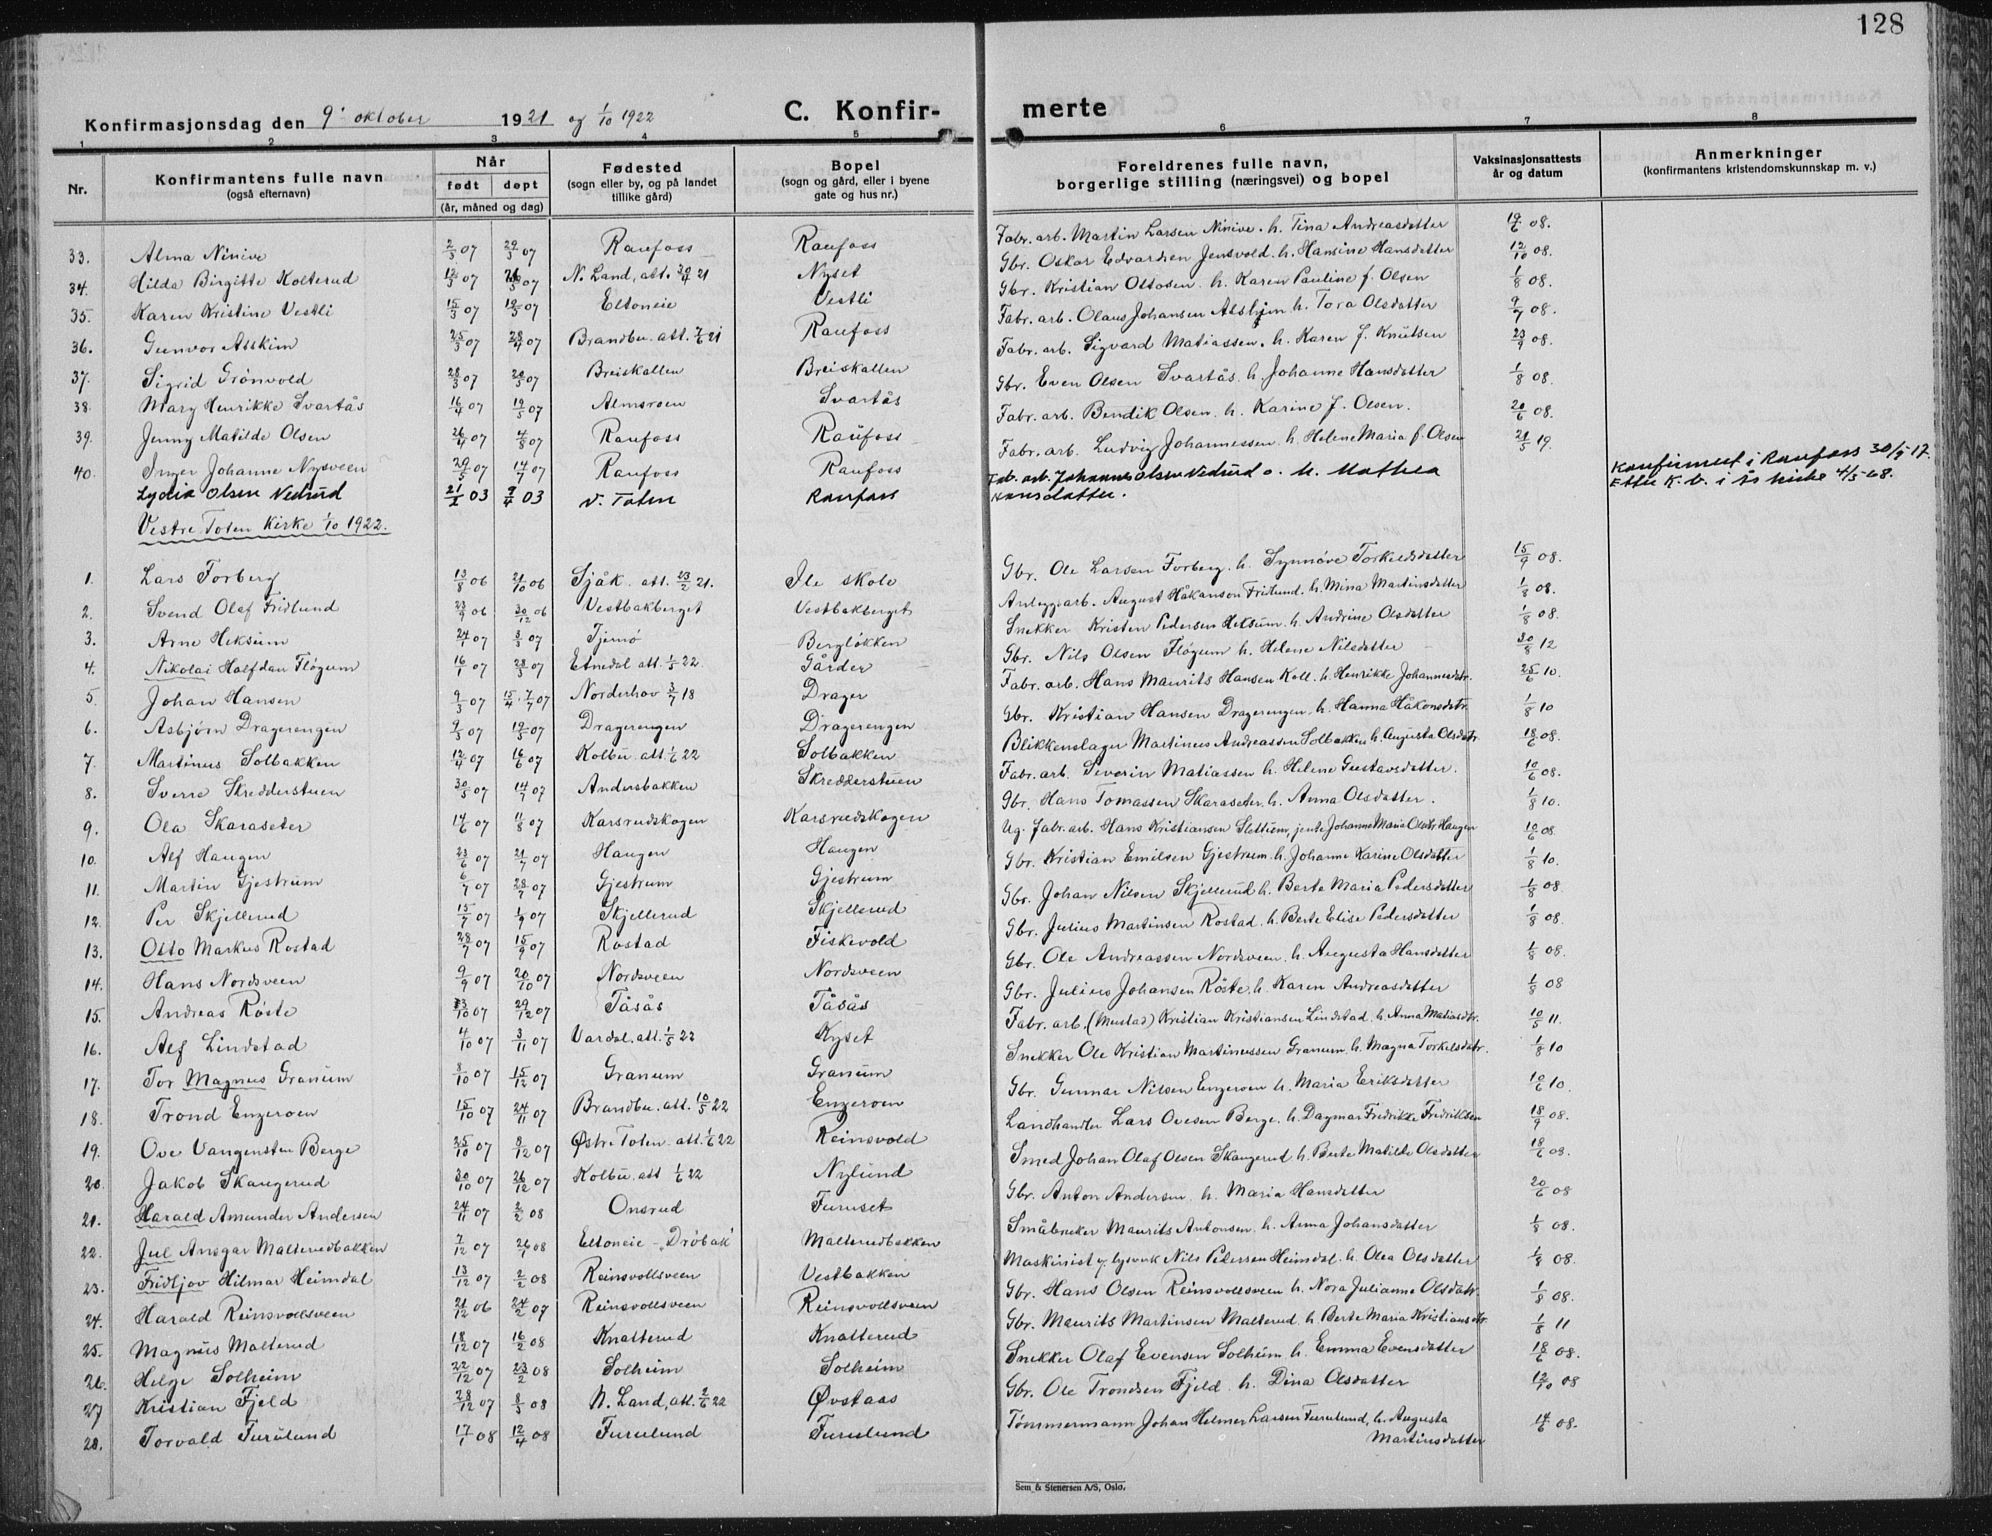 128
Konfirmasjonsdag den 9. oktober 1921 og 1/10 1922 C. Konfirmerte
1 2 3 4 5 6 7 8
Nr. Konfirmantens fulle navn (også efternavn) Når født døpt (år, måned og dag) Fødested (sogn eller by, og på landet tillike gård) Bopel (sogn og gård, eller i byene gate og hus nr.) Foreldrenes fulle navn, borgerlige stilling (næringsvei) og bopel Vaksinasjonsattests år og datum Anmerkninger (konfirmantens kristendomskunnskap m. v.)
33. Alma Ninive 2/3 07 29/3 07 Raufoss Raufoss Fabr. arb. Martin Larsen Ninive. h. Tina Andreasdatter 19/6 08.
34. Hilda Birgitte Kolterud 12/3 07 N. Land, att. 30/4 21 Nyset Gbr. Oskar Edvardsen Jensvold. h. Hansine Hansdatter 12/10 08.
35. Karen Kristine Vestli 15/3 07 19/5 07 Eltoneie Vestli Gbr. Kristian Ottosen. h. Karen Pauline f. Olsen 1/8 08.
36. Gunvor Alskim 25/3 07 28/4 07 Brandbu. att. 7/6 21 Raufoss Fabr. arb. Olaus Johansen Alshjem h. Tora Olsdatter 9/7 08.
37. Sigrid Grönvold 28/3 07 20/5 07 Breiskallen Breiskallen Fabr. arb. Sigvard Matiassen. h. Karen f. Knutsen 23/9 08.
38. Mary Henrikke Svartås 16/4 07 19/5 07 Almsroen Svartås Gbr. Even Olsen Svartås. h. Johanne Hansdatter 1/8 08.
39. Jenny Matilde Olsen 26/4 07 4/8 07 Raufoss Raufoss Fabr. arb. Bendik Olsen. h. Karine f. Olsen. 20/6 08.
40. Inger Johanne Nysveen 29/5 07 14/7 07 Raufoss Raufoss Fabr. arb. Ludvig Johannessen. h. Helene Maria f. Olsen 21/5 19.
Lydia Olsen Nedrud 21/2 03 9/4 03 V. Toten Raufoss Fab. arb. Johannes Olsen Nedrud o. h. Mathea Hansdatter. Konfirmert i Raufoss 30/9-17. Etter K.b. i ås kirke 4/5-68.
Vestre Toten Kirke 1/10 1922.
1. Lars Forberg 13/8 06 21/10 06 Sjåk. att. 23/2 21. Ile skole Gbr. Ole Larsen Forberg. h. Synnöve Torkeldsdatter 15/9 08.
2. Svend Olaf Fridlund 23/9 06 30/12 06 Vestbakberget Vestbakberget Anleggsarb. August Håkanson Fritlund. h. Mina Martinsdatter 1/8 08.
3. Arne Heksum 3/3 07 Tjemö Bergløkken Snekker Kristen Pedersen Heksum. h. Andrine Olsdatter 1/8 08.
4. Nikolai Halfdan Fløgum 16/1 07 28/3 07 Etnedal att. 1/5 22. Gårder Gbr. Nils Olsen Fløgum h. Helene Nilsdatter 30/8 12
5. Johan Hansen 9/3 07 15/4. 7/7 07 Norderhov 3/7 18 Drager Fabr. arb. Hans Maurits Hansen Koll. h. Henrikke Johannesdtr. 25/6 10.
6. Asbjörn Dragerengen 9/3 07 19/5 07 Dragerengen Dragerengen Gbr. Kristian Hansen Dragerengen. h. Hanna Håkonsdtr. 1/8 10
7. Martinus Solbakken 12/4 07 16/6 07 Kolbu. att 1/6 22 Solbakken Blikkenslager Martinus Andreassen Solbakken h. Augusta Olsdtr. 18/6 08.
8. Sverre Skredderstuen 30/5 07 14/7 07 Andersbakken Skredderstuen Fabr. arb. Severin Matiassen h. Helene Gustavsdatter. 10/6 08.
9. Ola Skaraseter 14/6 07 11/8 07 Karsrudskogen Karsrudskogen Gbr. Hans Tomassen Skaraseter. h. Anna Olsdatter. 1/8 10.
10. Alf Haugen 23/6 07 21/7 07 Haugen Haugen Ug. fabr. arb. Hans Kristiansen Slettum, jente Johanne Maria Olsdtr. Haugen 10/6 08.
11. Martin Gjestrum 6/7 07 28/7 07 Gjestrum Gjestrum Gbr. Kristian Emilsen Gjestrum. h. Johanne Karine Olsdatter 1/8 10.
12. Per Skjellerud 15/7 07 1/9 07 Skjellerud Skjellerud Gbr. Johan Nilsen Skjellerud h. Berte Maria Pedersdatter 1/8 08.
13. Otto Markus Rostad 28/7 07 15/9 07 Rostad Fiskevold Gbr. Julius Martinsen Rostad. h. Berte Elise Pedersdatter 1/8 08.
14. Hans Nordsveen 9/9 07 20/10 07 Nordsveen Nordsveen Gbr. Ole Andreassen Nordsveen. h. Augusta Hansdatter 1/8 08.
15. Andreas Röste 13/10 07 29/12 07 Tåsås Tåsås Gbr. Julius Johansen Röste. h. Karen Andreasdatter 1/8 08
16. Alf Lindstad 4/10 07 3/11 07 Vardal. att. 1/5 22 Kyset Fabr. arb. (Mustad) Kristian Kristiansen Lindstad. h. Anna Matiasdtr. 10/5 11.
17. Tor Magnus Granum 8/10 07 15/12 07 Granum Granum Snekker Ole Kristian Martinussen Granum. h. Magna Torkelsdatr. 1/8 10
18. Trond Engeroen 15/10 07 24/11 07 Brandbu. att. 10/5 22 Engeroen Gbr. Gunnar Nilsen Engeroen h. Maria Eriksdatter 10/6 10.
19. Ove Vangensten Berge 25/10 07 8/12 07 Østre Toten. att. 1/6 22 Reinsvold Landhandler Lars Ovesen Berge. h. Dagmar Fredrikke Fredriksen 18/9 08.
20. Jakob Skaugerud 30/10 07 26/12 07 Kolbu. att 1/6 22 Nylund Smed Johan Olaf Olsen Skaugerud h. Berte Matilde Olsdatter 18/6 08.
21. Harald Amunder Andersen 24/11 07 2/2 08 Onsrud Furuset Gbr. Anton Andersen. h. Maria Hansdatter 20/6 08
22. Jul Ansgar Malterudbakken 7/12 07 26/1 08 Eltoneie - "Dröbak" Malterudbakken Småbruker Maurits Antonsen. h. Anna Johansdatter 1/8 08.
23. Fridtjov Hilmar Heimdal 13/12 07 2/2 08 Reinsvollsveen Vestbakken Maskinist v. lysverk Nils Pedersen Heimdal. h. Olea Olsdatter 1/8 08.
24. Harald Reinsvollsveen 21/12 06 24/2 07 Reinsvollsveen Reinsvollsveen Gbr. Hans Olsen Reinsvollsveen h. Nora Julianne Olsdatr. 1/8 08.
25. Magnus Malterud 18/12 07 16/2 08 Knatterud Knatterud Gbr. Maurits Martinsen Malterud. h. Berte Maria Kristiansdtr. 1/8 11
26. Helge Solheim 22/12 07 23/2 08 Solheim Solheim Snekker Olaf Evensen Solheim h. Emma Evensdatter 18/6 08.
27 Kristian Fjeld 28/12 07 8/3 08 N. Land, att. 2/6 22 Øvstaas Gbr. Ole Trondsen Fjeld. h. Dina Olsdatter 12/10 08
28. Torvald Furulund 17/1 08 12/4 08 Furulund Furulund Tømmermann Johan Helmer Larsen Furulund, h. Augusta Martinsdatter 14/6 08.
Sem & Stenersen A/S, Oslo.